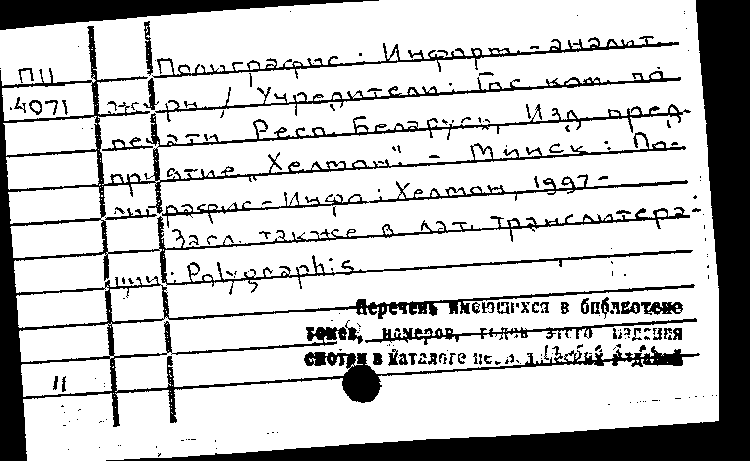 П11 Полиграфис : Информ.-аналит.
4071 журн. / Учредители: Гос. ком. по
печати Респ. Беларусь, Изд. пред-
приятие „Хелтон". - Минск : По-
лиграфис-Инфо : Хелтон, 1997-
Загл. также в лат. транслитера-
ции: Polygraphis.
Перечень имеющихся в библиотеке
томов, номеров, годов этого издания
смотри в каталоге изданий
11